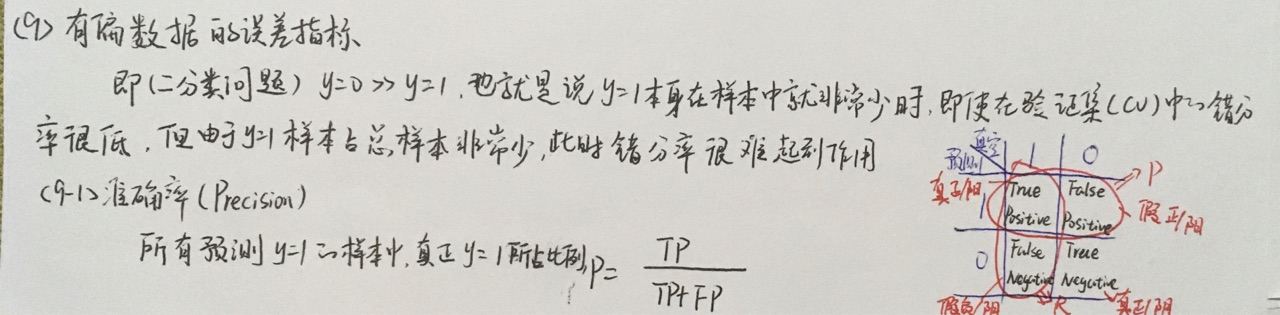 (9) 有偏数据的误差指标、
即(二分类问题) y=0 >> y=1, 也就是说 y=1本身在样本中就非常少时, 即使在验证集(CV)中的错分
率很低, 但由于y=1样本占总样本非常少, 此时错分率很难起到作用
(9-1) 准确率(Precision)
所有预测y=1的样本中, 真正y=1所占比例, P= TP
TP+FP
真实
预测 1 0
真正/阳 1 True Positive False Positive P 假正/阳
0 False Negative True Negative
假负/阴 R 真正/阴